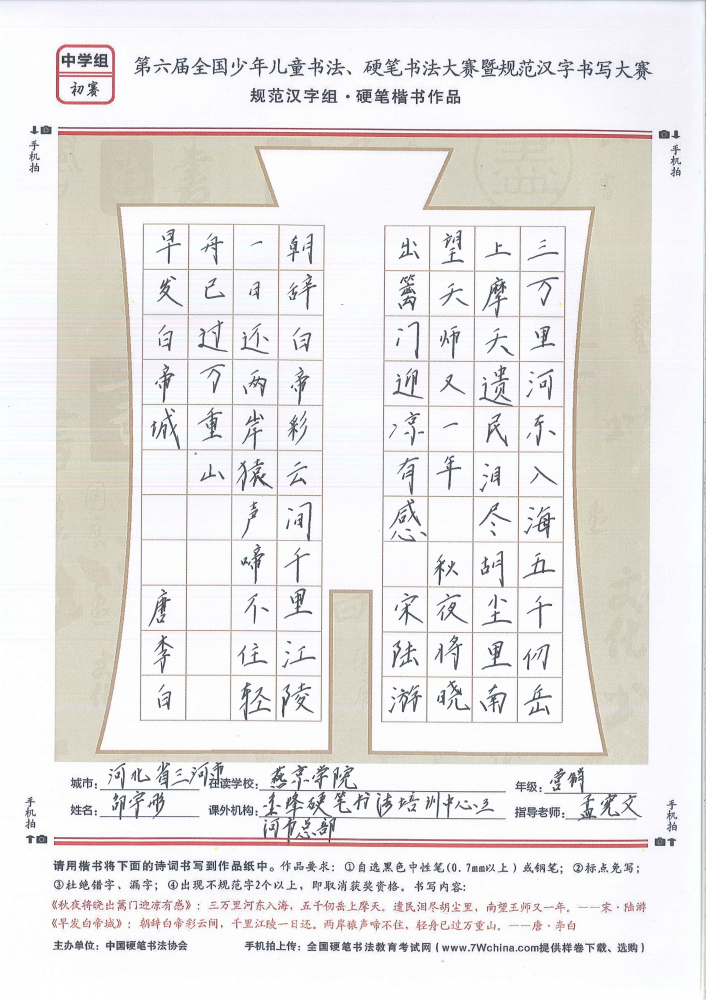 中学组
初赛
第六届全国少年儿童书法、硬笔书法大赛暨规范汉字书写大赛
规范汉字组·硬笔楷书作品
手机拍
手机拍
三万里河东入海五千仞岳
上摩天遗民泪尽胡尘里南
望天师又一年 秋夜将晓
出篱门迎凉有感 宋陆游
朝辞白帝彩云间千里江陵
一日还两岸猿声啼不住轻
舟已过万重山
早发白帝城 唐李白
城市：河北省三河市 在读学校：燕京学院 年级：营销
姓名：邵宇彤 课外机构：硬笔书法培训中心三河市总部 指导老师：孟宪文
手机拍
手机拍
请用楷书将下面的诗词书写到作品纸中。作品要求：①自选黑色中性笔(0.7mm以上)或钢笔；②标点免写；
③杜绝错字、漏字；④出现不规范字2个以上，即取消获奖资格。书写内容：
《秋夜将晓出篱门迎凉有感》：三万里河东入海，五千仞岳上摩天。遗民泪尽胡尘里，南望王师又一年。——宋·陆游
《早发白帝城》：朝辞白帝彩云间，千里江陵一日还。两岸猿声啼不住，轻舟已过万重山。——唐·李白
主办单位：中国硬笔书法协会 手机拍上传：全国硬笔书法教育考试网（www.7Wchina.com提供样卷下载、选购）